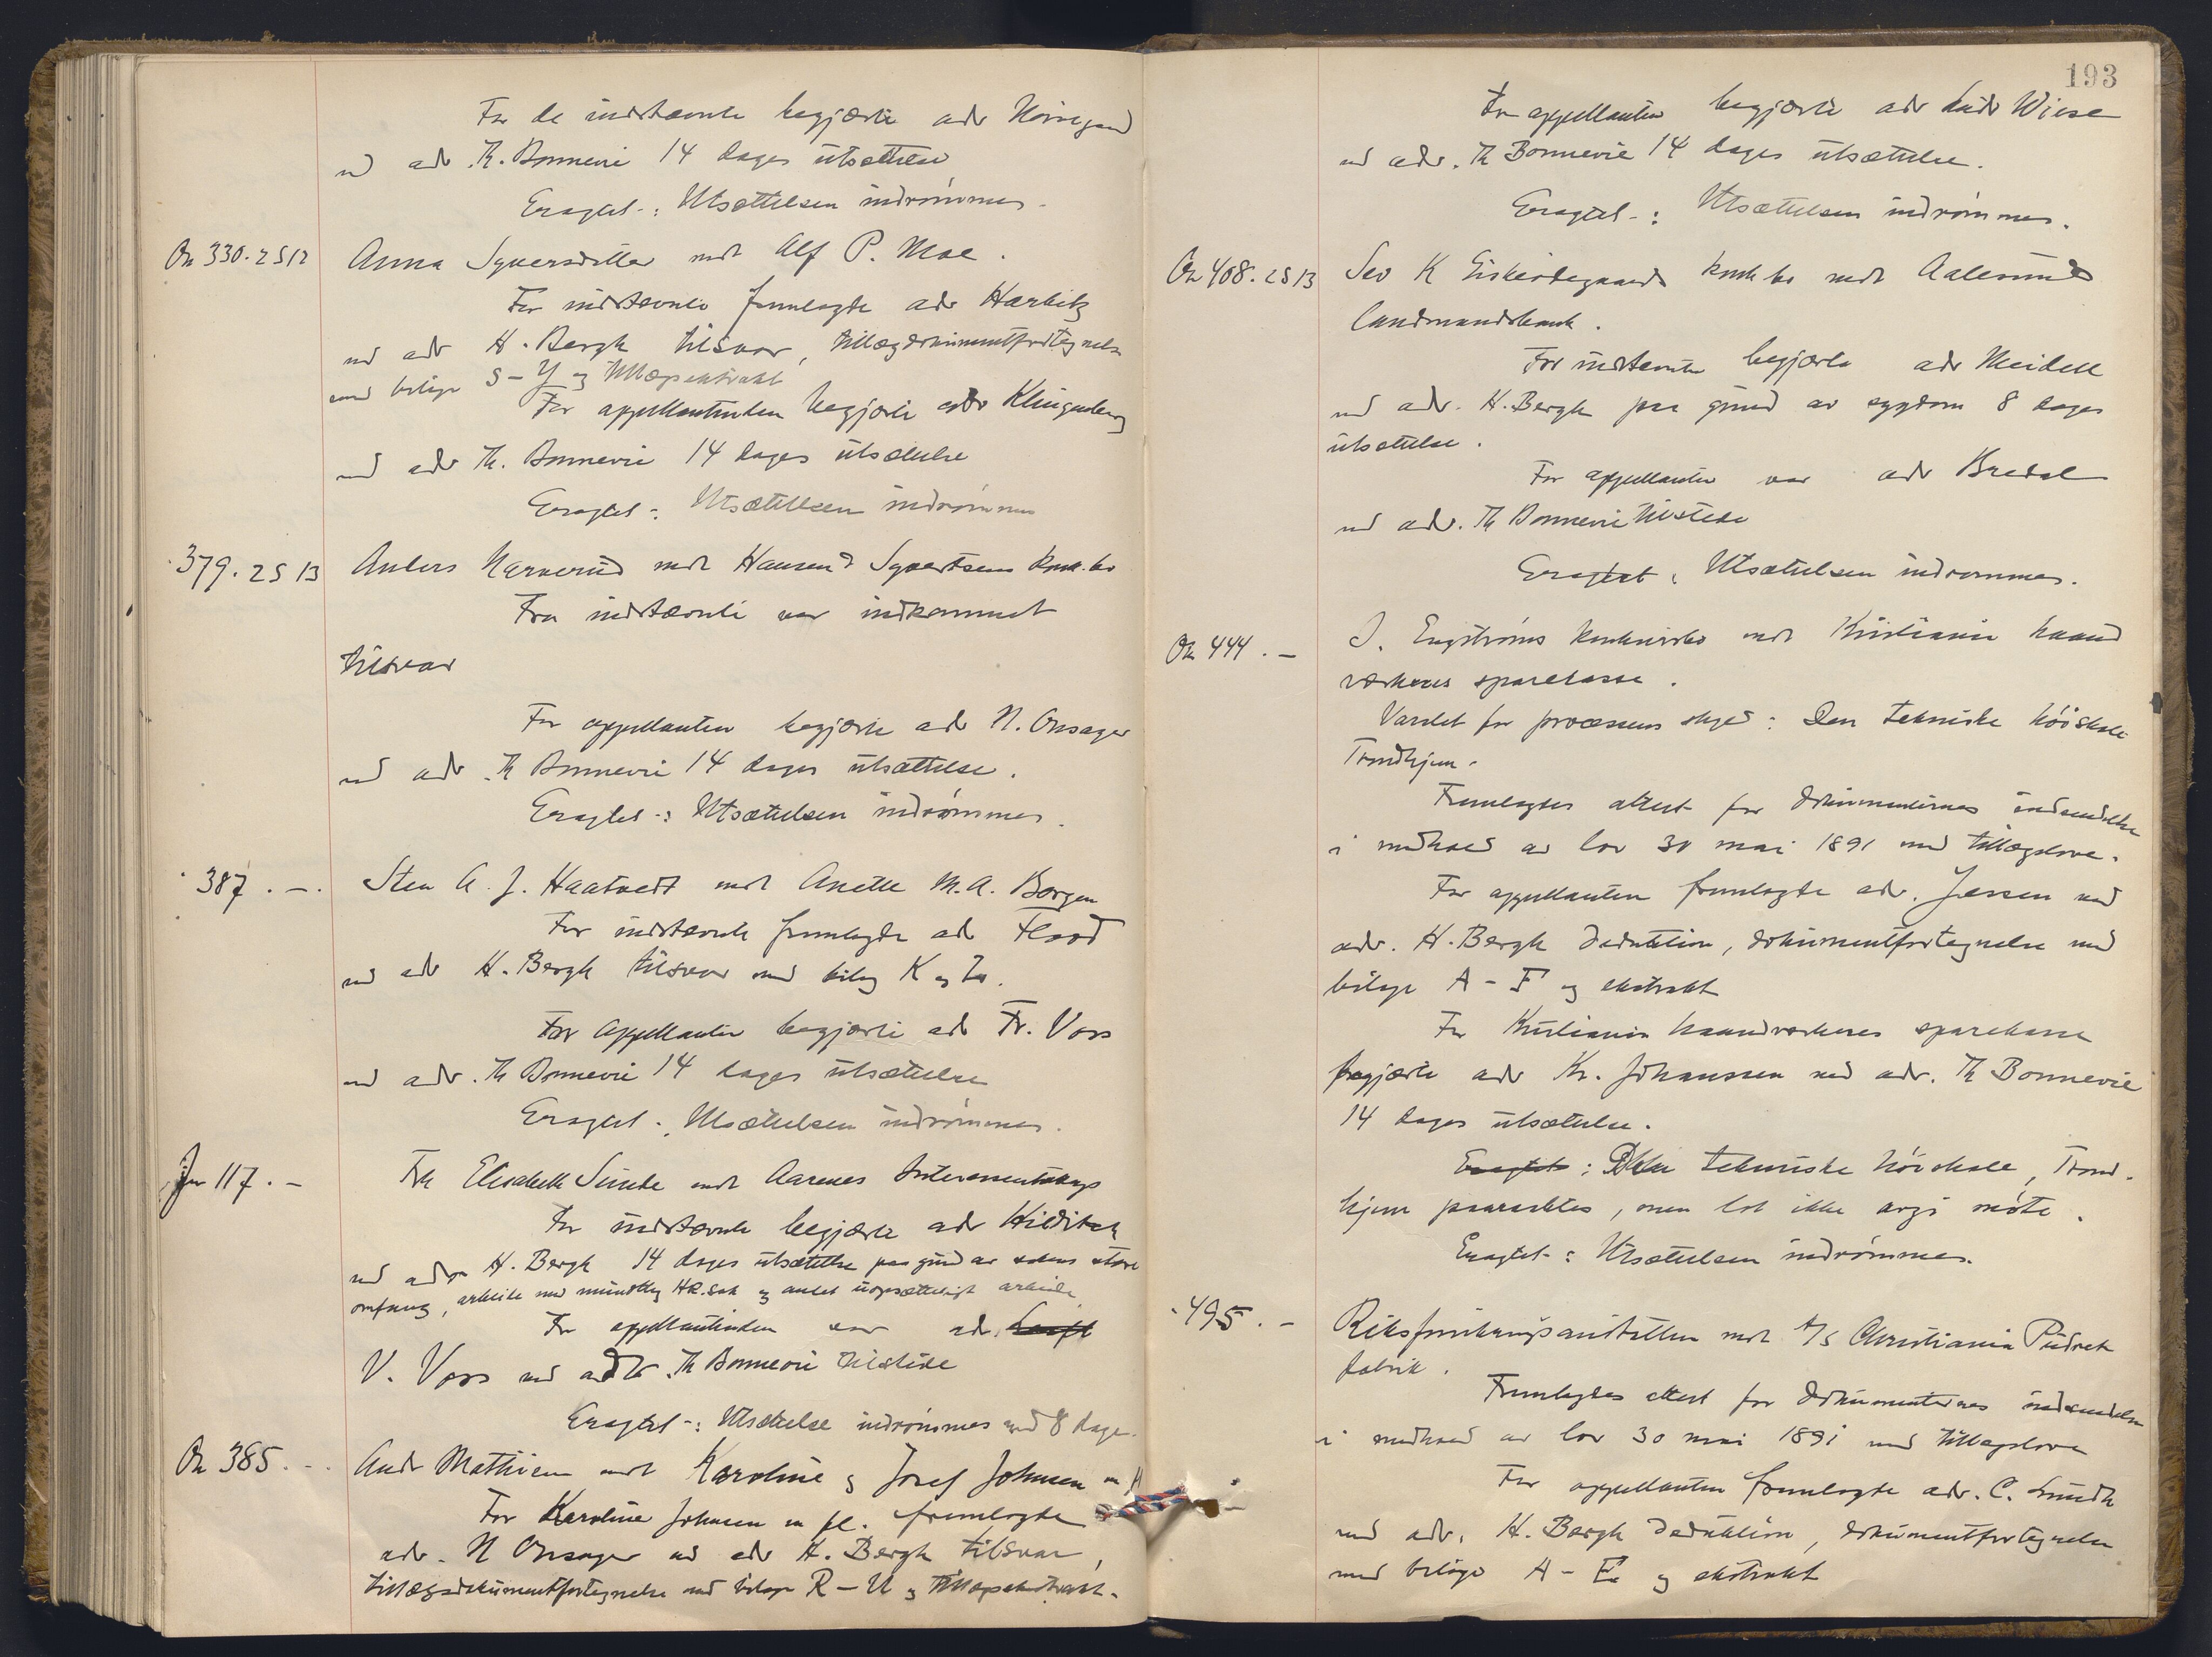 For de indstævnte begjærte adv Horregaard
ved adv Th. Bonnevie 14 dages utsættelse
Eragtet -: Utsættelsen indrømmes.
On 330. 2512 Anna Syversdatter mot Alf P. Moe.
For indstævnte fremlagde adv Harbitz
ved adv H. Bergh tilsvar, tillægsdokumentfortegnelse
med bilage S - Y og tillægsekstrakt
For appellantinden begjærte adv Klingenberg
ved adv Th. Bonnevie 14 dages utsættelse
Eragtet -: Utsættelsen indrømmes
379. 2513 Anders Narverud mot Hansen & Syvertsens konk.bo
Fra indstævnte var indkommet
tilsvar
For appellanten begjærte adv N. Onsager
ved adv. Th Bonnevie 14 dages utsættelse.
Eragtet -: Utsættelsen indrømmes.
387. - Sten A. J. Haatvedt mot Anette M. A. Borgen
For indstævnte fremlagde adv Flood
ved adv H. Bergh tilsvar med bilag K og L.
For appellanten begjærte adv Fr. Voss
ved adv. Th Bonnevie 14 dages utsættelse
Eragtet -: Utsættelsen indrømmes.
Jn 117. - Frk Elisabeth Sinde mot Aarenes Interessentskap
For indstævnte begjærte adv Hilditch
ved adv H. Bergh 14 dages utsættelse paa grund av sakens store
omfang, arbeide med mundtlig HR.sak og andet uopsætteligt arbeide
For appellantinden var adv.
V. Voss ved adv. Th Bonnevie tilstede
Eragtet -: Utsættelse indrømmes med 8 dage.
On 385. - Andr Mathisen mot Karoline og Josef Johnsen m fl
For Karoline Johnsen m fl. fremlagde
adv. N Onsager ved adv H. Bergh tilsvar,
tillægsdokumentfortegnelse med bilage R - U og tillægsekstrakt.
193
For appellanten begjærte adv Wiese
ved adv. Th Bonnevie 14 dages utsættelse.
Eragtet -: Utsættelsen indrømmes.
On 408. 2513 Sev K Eiskerdegaards konk bo mot Aalesunds
landmandsbank.
For indstævnte begjærte adv Meidell
ved adv. H. Bergh paa grund av sygdom 8 dages
utsættelse.
For appellanten var adv Bredal
ved adv. Th Bonnevie tilstede
Eragtet: Utsættelsen indrømmes.
On 444. - J. Engströms konkursbo mot Kristiania haand
værkeres sparekasse.
Varslet for processens skyld: Den tekniske høiskole
Trondhjem.
Fremlagdes attest for dokumenternes indsendelse
i medhold av lov 30 mai 1891 med tillægslove.
For appellanten fremlagde adv. Jessen ved
adv. H. Bergh deduktion, dokumentfortegnelse med
bilage A - F og ekstrakt
For Kristiania haandværkeres sparekasse
begjærte adv Kr. Johanssen ved adv. Th Bonnevie
14 dages utsættelse.
Eragtet: Den tekniske høiskole, Trond-
hjem paaraabtes, men lot ikke avgi møte.
Eragtet -: Utsættelsen indrømmes.
495. - Riksforsikringsanstalten mot A/S Christiania Pudret
fabrik.
Fremlagdes attest for dokumenternes indsendelse
i medhold av lov 30 mai 1891 med tillægslove
For appellanten fremlagde adv. C. Lundh
ved adv. H. Bergh deduktion, dokumentfortegnelse
med bilage A - E og ekstrakt